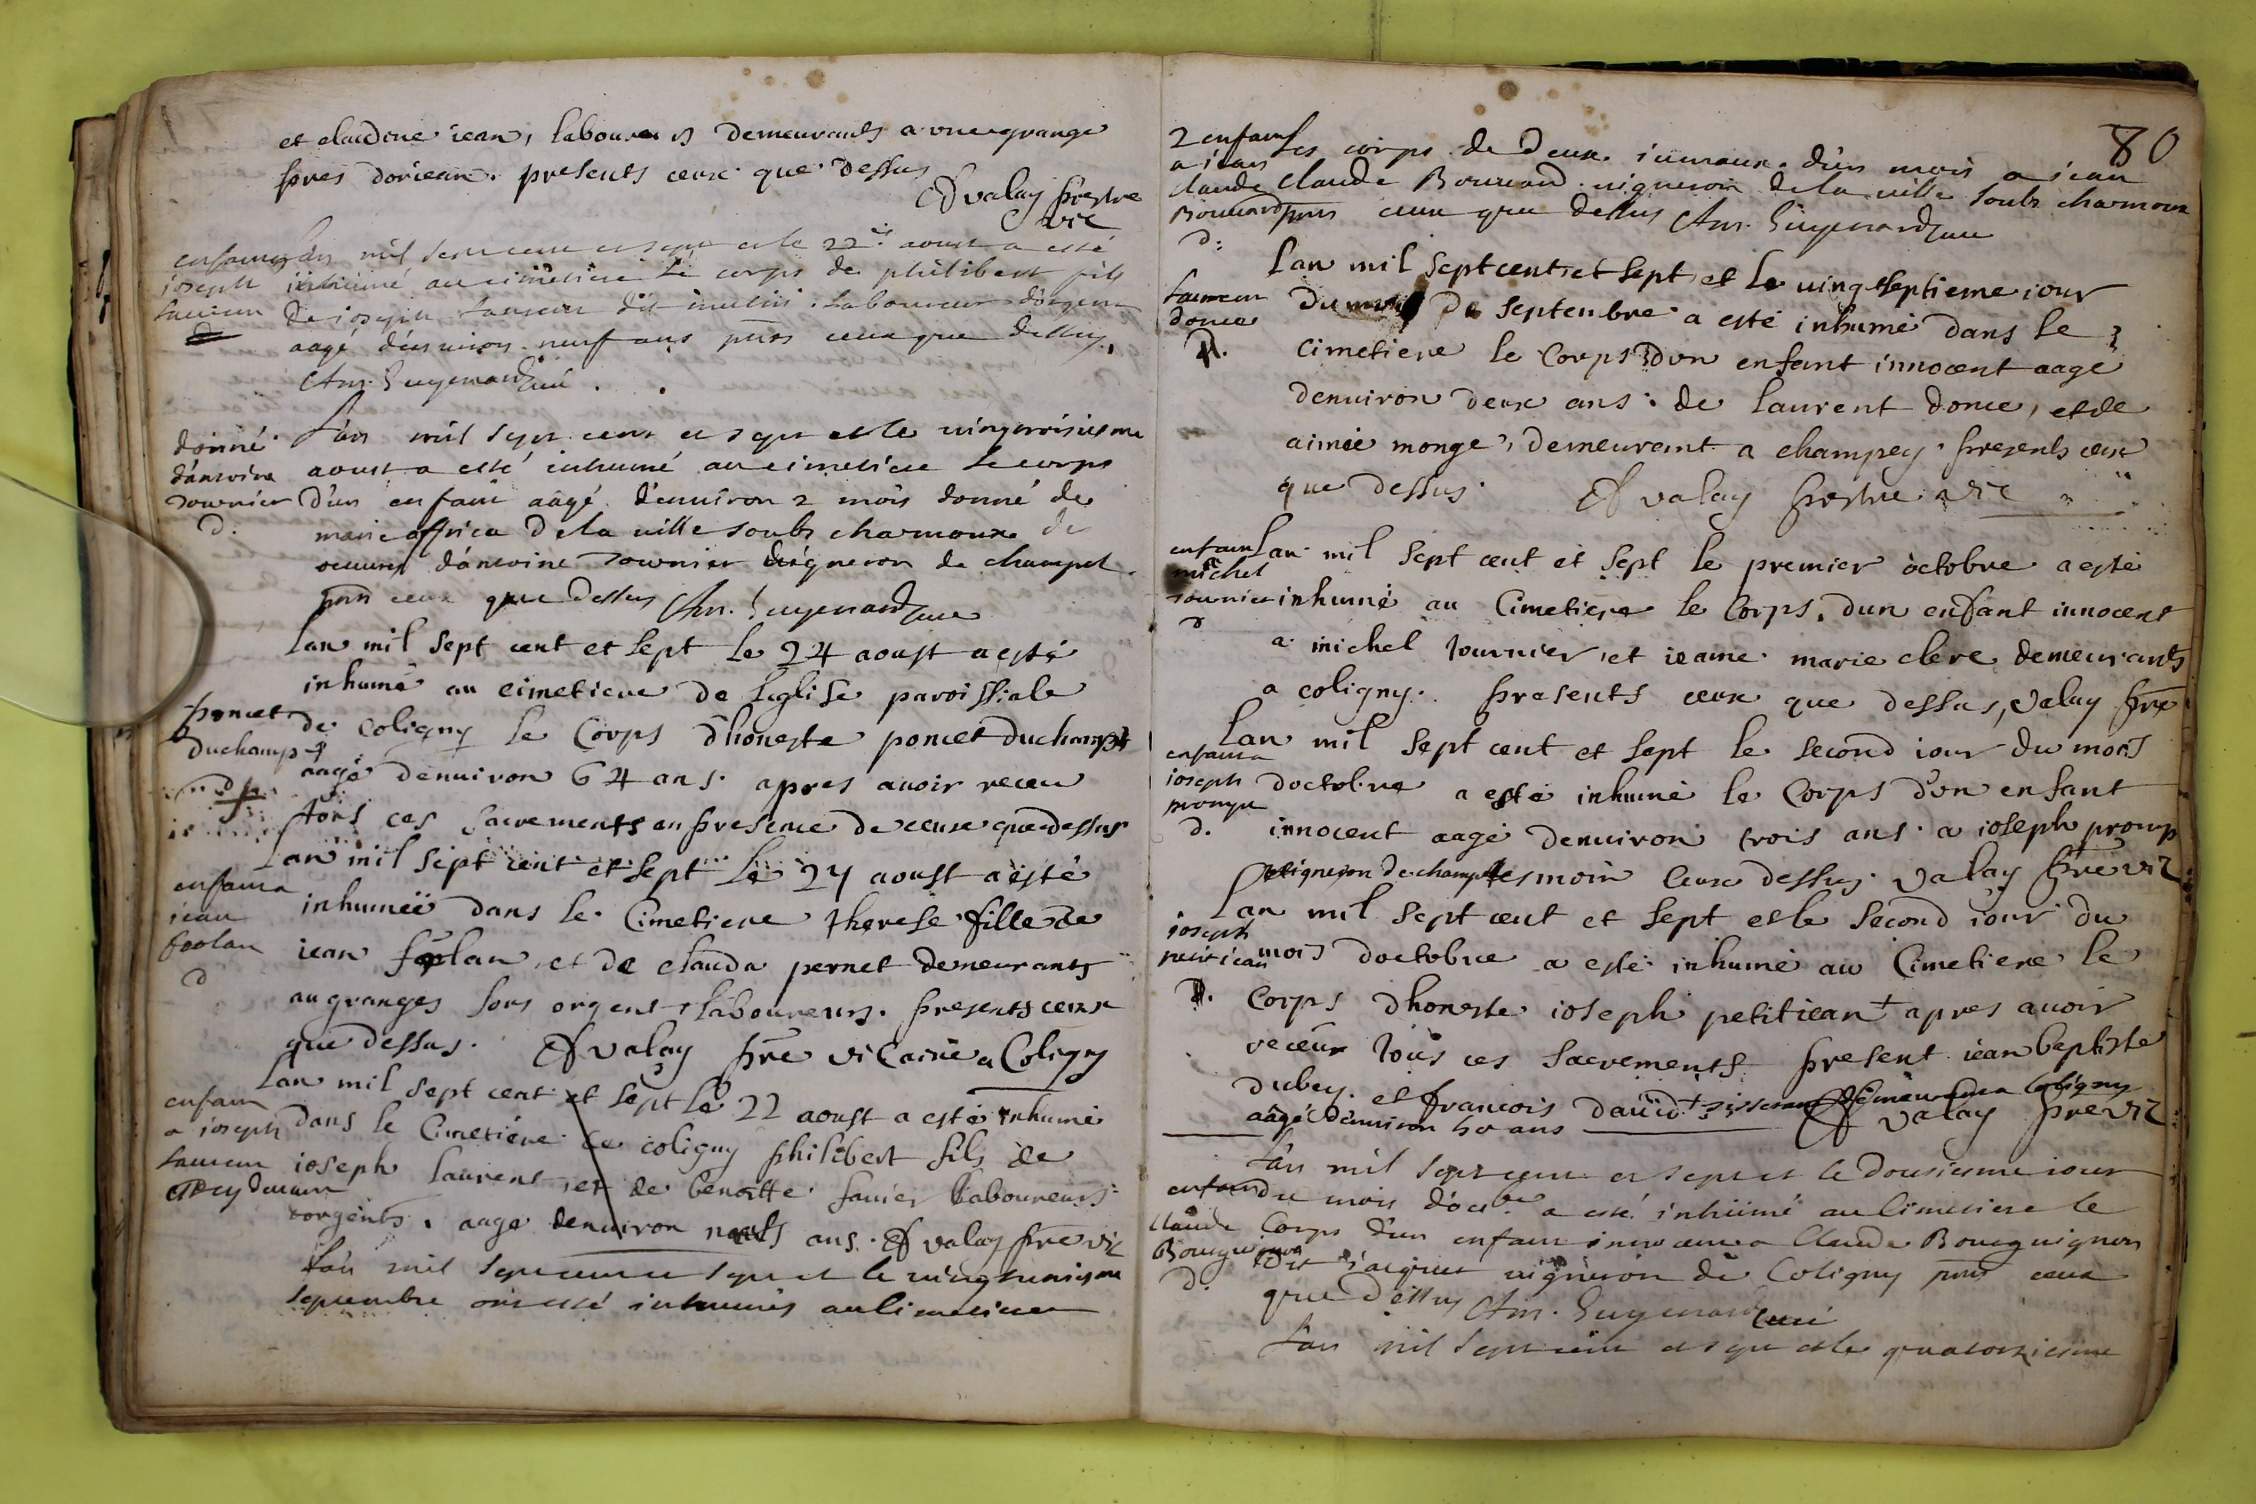 et claudine iean, laboureurs demeurants a une grange
pres dorieam. presents ceux que dessus
Valay prestre
vic
enfant a
ioseph
laurens
Lan mil sept cent et sept et le 22 aoust a esté
inhumé au cimetiere le corps de philibert fils
de ioseph laurens dit laboureur dorgent
aagé denviron neuf ans pnts ceux que dessus,
curé
donné
d'antoine
tournier
d.
L'an mil sept cent et sept et le vingtroisiesme
aoust a esté inhumé au cimetiere le corps
d'un enfant aâgé d'environ 2 mois donné de
marie de la ville soubs charmoux de
oeuures d'antoine tournier vigneron de champel
pnts ceux que dessus curé
Lan mil sept cent et sept le 24 aoust a esté
inhumé au cimetiere de leglise paroissiale
poncet
duchamp
de coligny le Corps dhoneste poncet duchampt
aagé denuiron 64 ans. apres auoir receu
tous ces sacrements en presence de ceux que dessus
enfant a
iean
foolan
d
Lan mil sept cent et sept le 27 aoust a esté
inhumëe dans le Cimetiere therese fille de
iean folan, et de clauda pernet demeurants
au granges sous orgent, laboureurs. presents ceux
que dessus. Valay pre vicaire a Coligny
enfant
a ioseph
laurens
Lan mil sept cent et sept le 22 aoust a esté inhumé
dans le Cimetiére de coligny philibert fils de
ioseph laurens, et de benoitte fauier laboureurs
dorgents. aage denuiron neufs ans. Valay pre vic
L'an mil sept cent et sept et le vingtuniesme
septembre ont esté inhumés au Cimetiere
80
2 enfans
a iean
claude
Bouuard
d:
Les corps de deux iumeaux d'un mois a iean
claude Bouuard vigneron de la ville soubs charmoux
pnts ceux que dessus curé
laurent
donce
d.
Lan mil sept cent et sept, et le vingtseptieme iour
du mois de septenbre a esté inhumé dans le
cimetiere le Corps dun enfant innocent aage
denuiron deux ans. de laurent donce, et de
aimée monge, demeurant a champey. presents ceux
que dessus. Valay prestre vic
enfant a
michel
tournier
d
Lan mil sept cent et sept le premier octobre a esté
inhumé au Cimetiere le Corps, dun enfant innocent
a michel tournier, et ieanne marie clere demeurants
a coligny. presents ceux que dessus, Valay pre
enfant a
ioseph
promp
d.
Lan mil sept cent et sept le second iour du mois
doctobre a esté inhumé le Corps d'un enfant
innocent aagé denuiron trois ans a ioseph promp
vigneron de champel tesmoin ceux dessus. Valay pre vic
ioseph
petit iean
d.
Lan mil sept cent et sept et le second iour du
mois doctobre a esté inhumé au Cimetiere le
Corps dhoneste ioseph petitiean + apres auoir
receuz tous ces sacrements present iean baptiste
dubey. et francois dauid + tisserans demeurant a Coligny
aâgé d'environ 50 ans Valay pre vic
enfant a
claude
Bourguignon
d.
L'an mil sept cent et sept et le dousiesme iour
du mois d'octbre a esté inhumé au Cimetiere le
Corps d'un enfant innocent a Claude Bourguignon
dit iacquet vigneron de Coligny pnts ceux
que dessus curé
L'an mil sept cent et sept et le quatorziesme